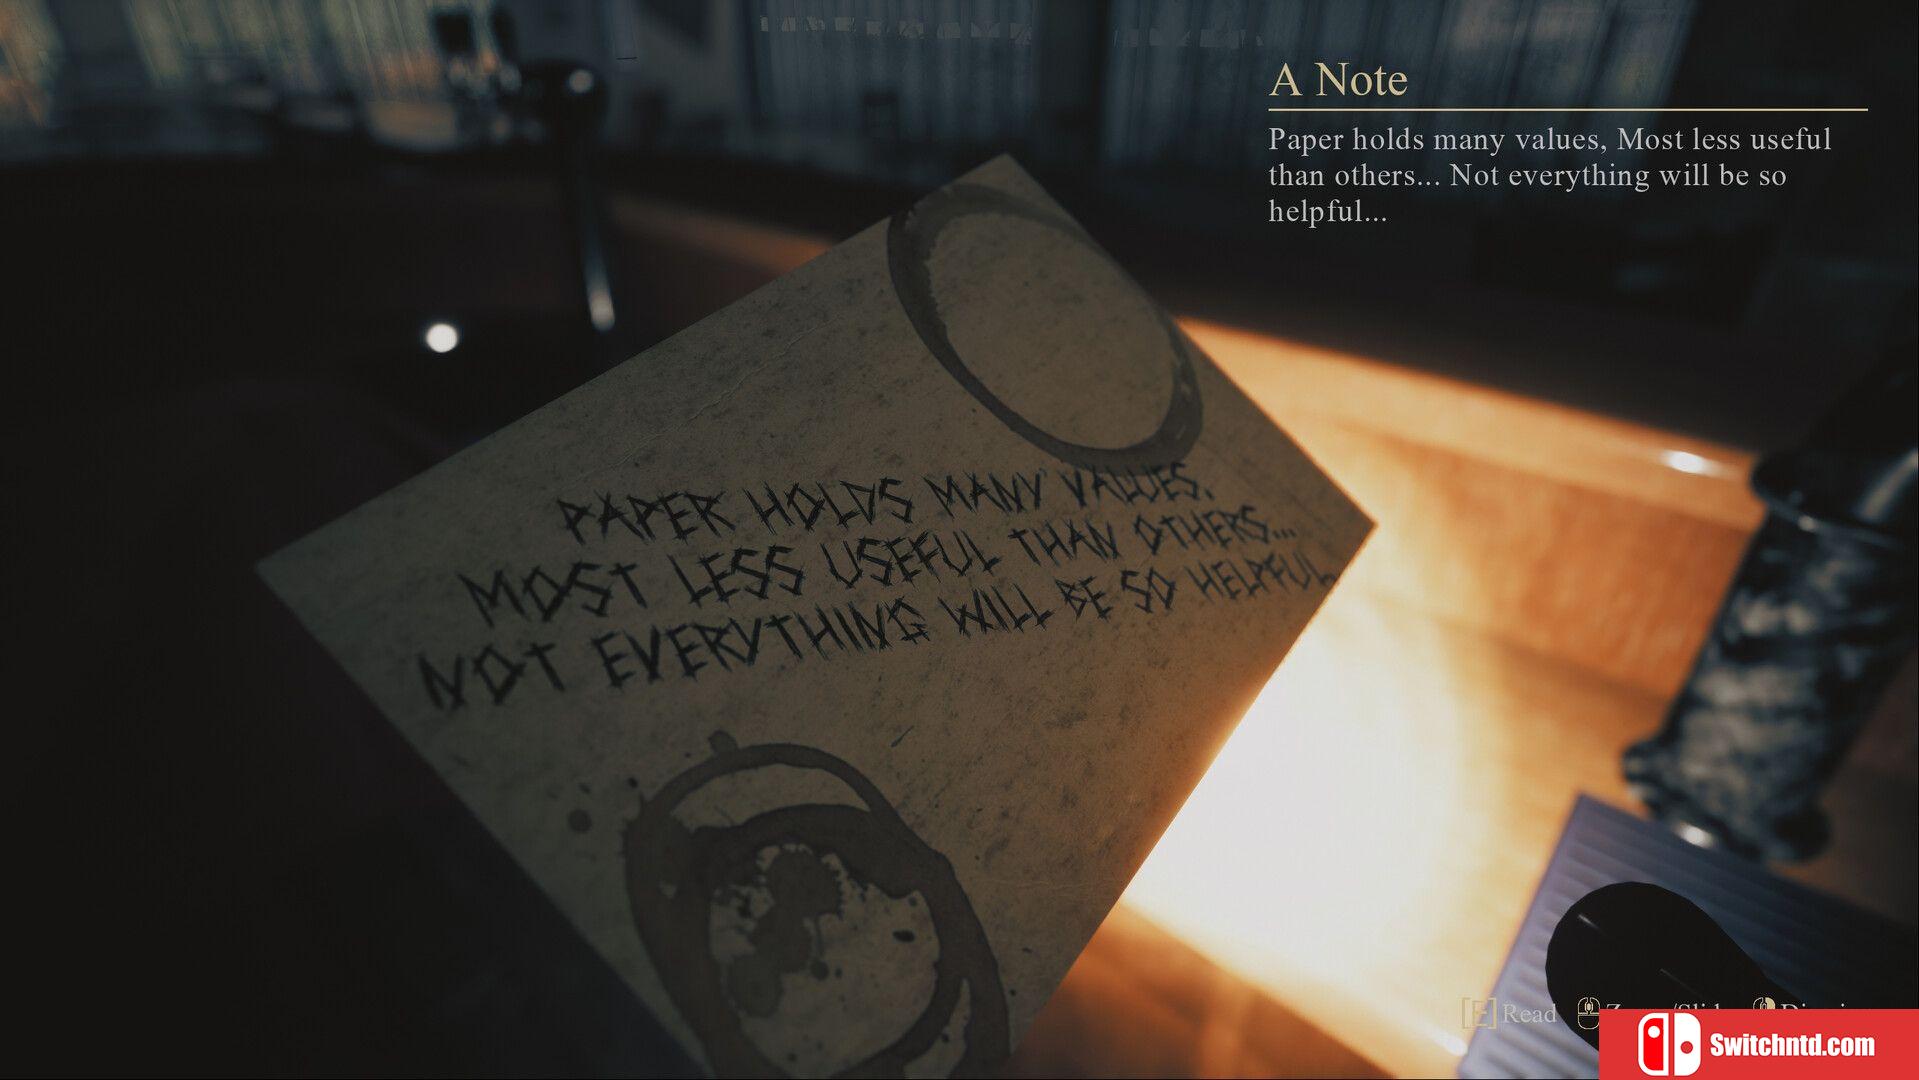 A Note
Paper holds many values, Most less useful
than others... Not everything will be so
helpful...
PAPER HOLDS MANY VALUES,
MOST LESS USEFUL THAN OTHERS...
NOT EVERYTHING WILL BE SO HELPFUL
[E] Read
Switchntd.com